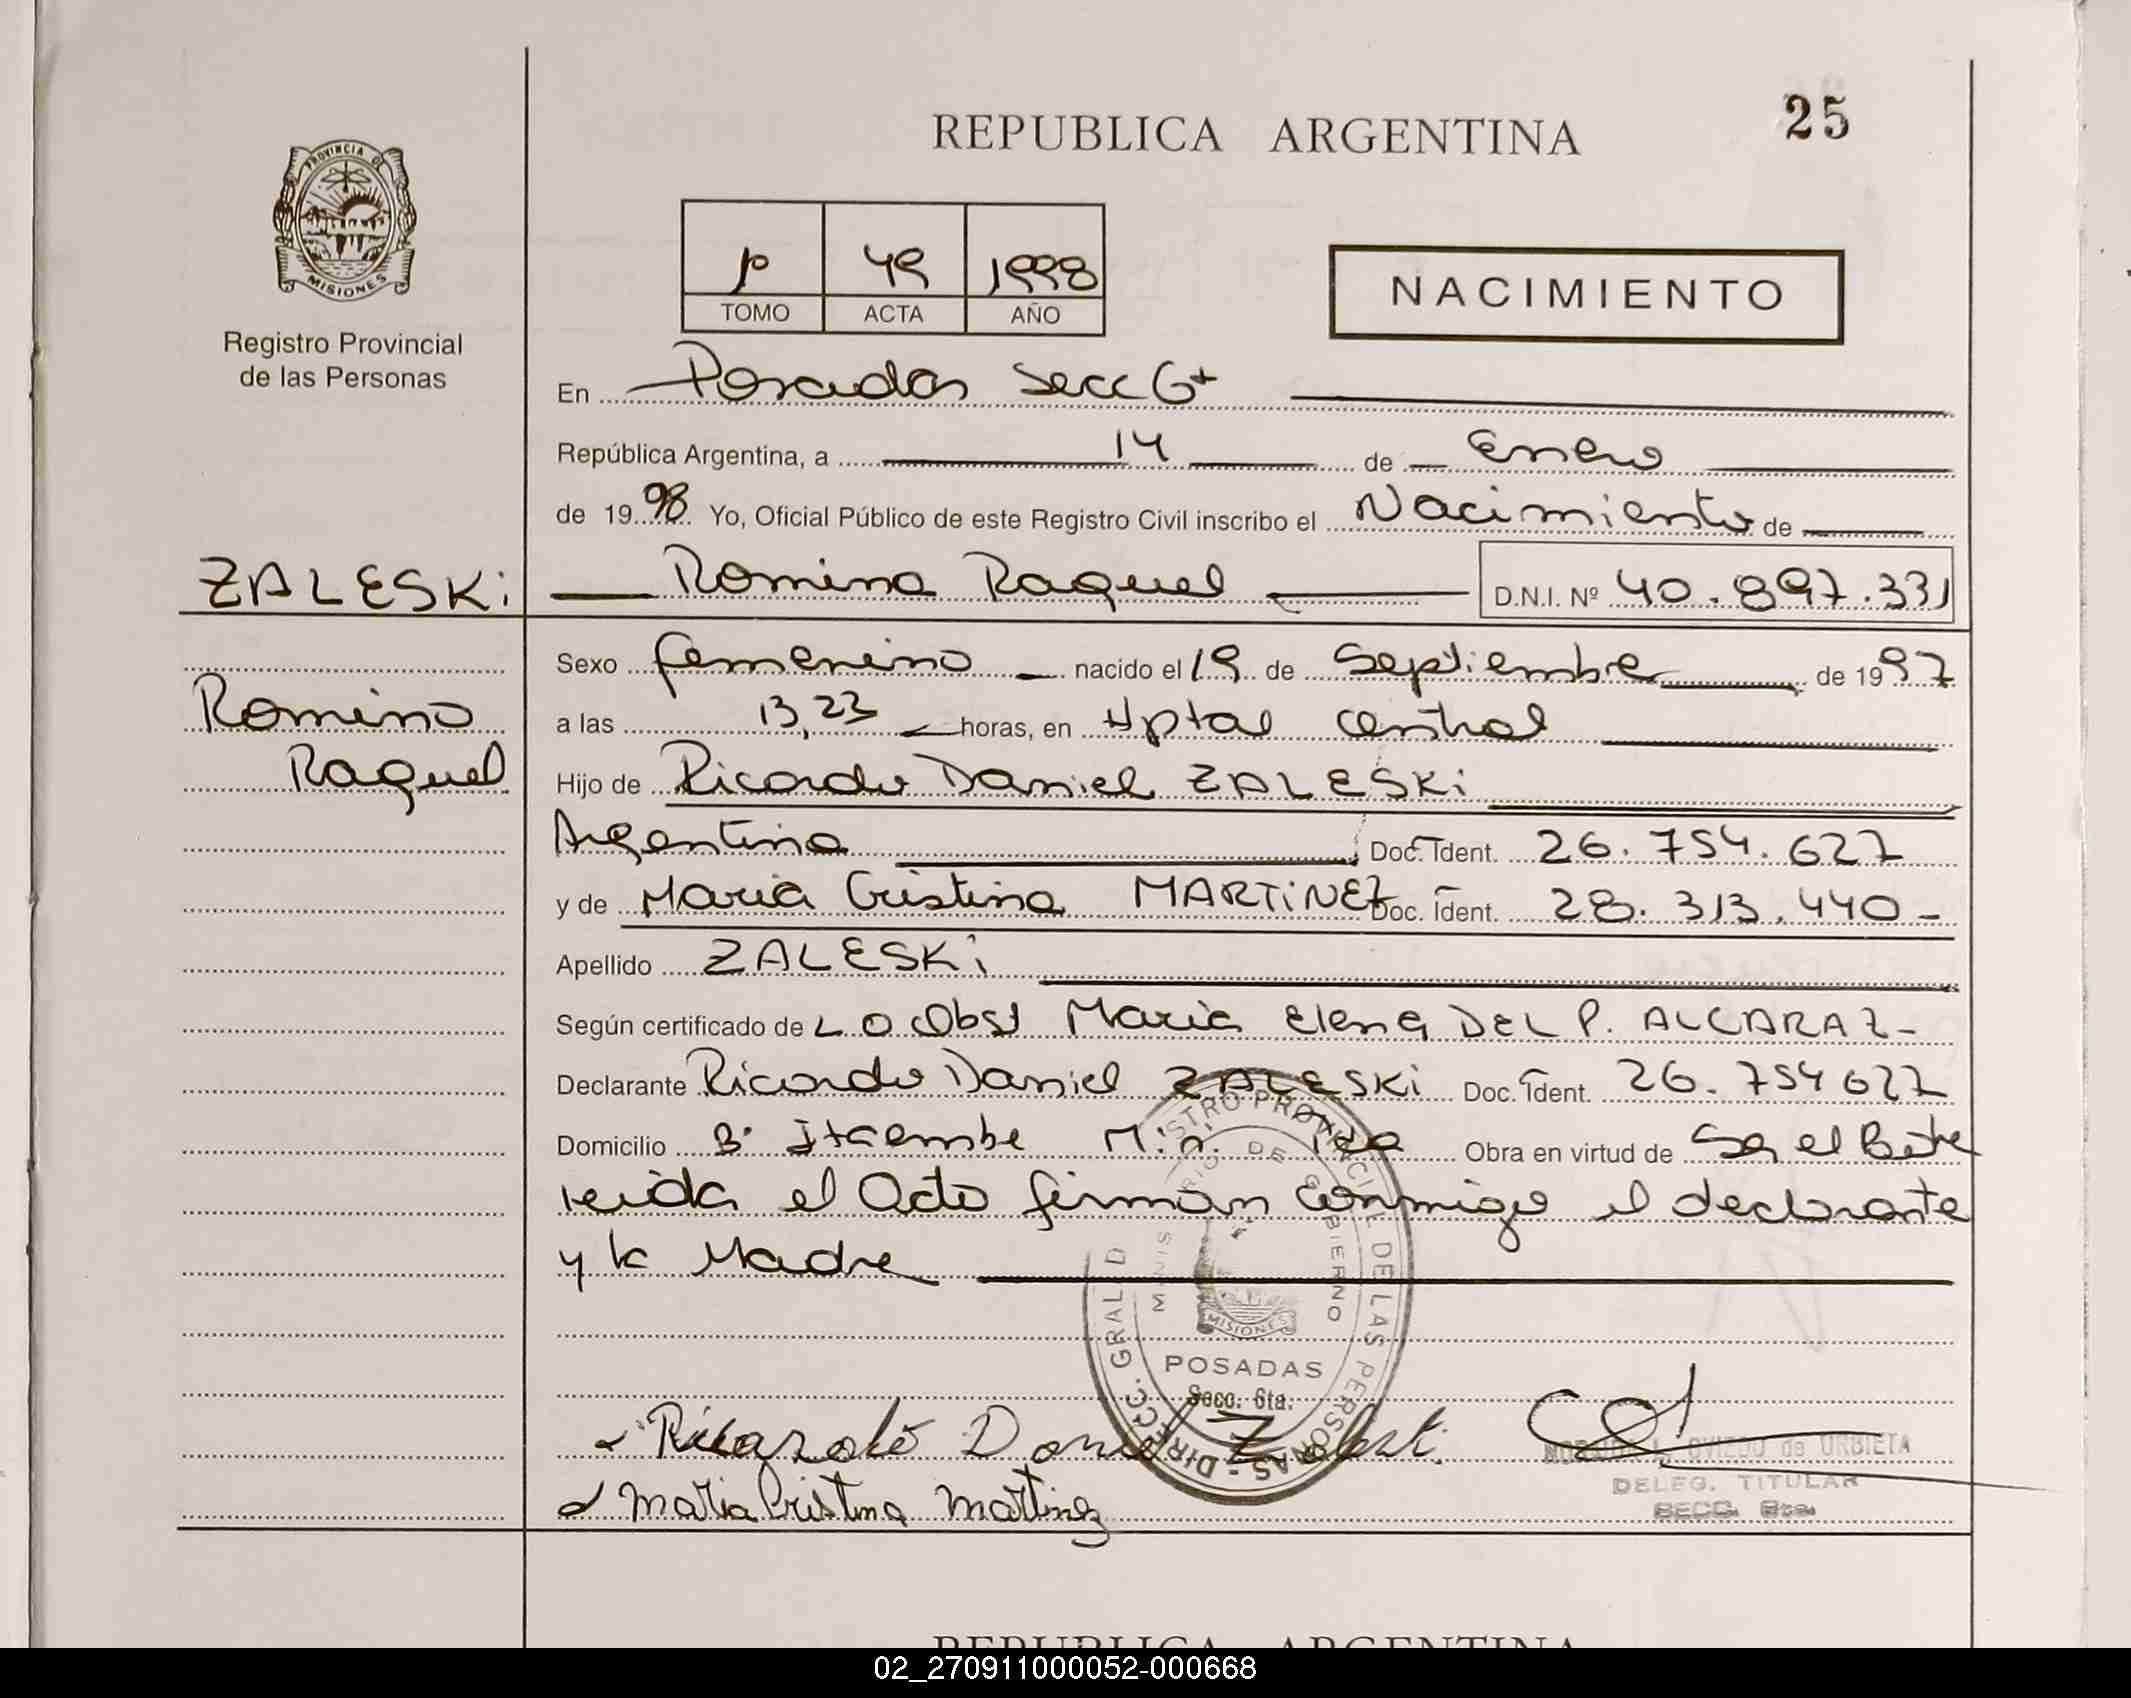 REPUBLICA ARGENTINA
25
PROVINCIA DE
MISIONES
Registro Provincial
de las Personas
1º 49 1998
TOMO ACTA AÑO
NACIMIENTO
En Posadas Secc 6ª
República Argentina, a 14 de Enero
de 1998 Yo, Oficial Público de este Registro Civil inscribo el Nacimiento de
ZALESKi Romina Raquel D.N.I. Nº 40.897.331
Romina
Raquel
Sexo femenino nacido el 19 de Septiembre de 1997
a las 13,23 horas, en Hptal Central
Hijo de Ricardo Daniel ZALESKi
Argentina Doc. Ident. 26.754.627
y de Maria Cristina MARTiNEZ Doc. Ident. 28.313.440-
Apellido ZALESKi
Según certificado de Obst Maria Elena DEL P. ALCARAZ-
Declarante Ricardo Daniel ZALESKi Doc. Ident. 26.754627
Domicilio Bº Itaembe Obra en virtud de Ser el
el Acto firman conmigo el declarante
y la Madre
DIRECC. GRAL. DEL REGISTRO PROVINCIAL DE LAS PERSONAS -
MINISTERIO DE GOBIERNO
MISIONES
POSADAS
Secc. 6ta.
Ricardo Daniel
Maria Cristina Martinez
OVIEDO de URBIETA
DELEG. TITULAR
SECC. 6ta.
REPUBLICA ARGENTINA
02_270911000052-000668